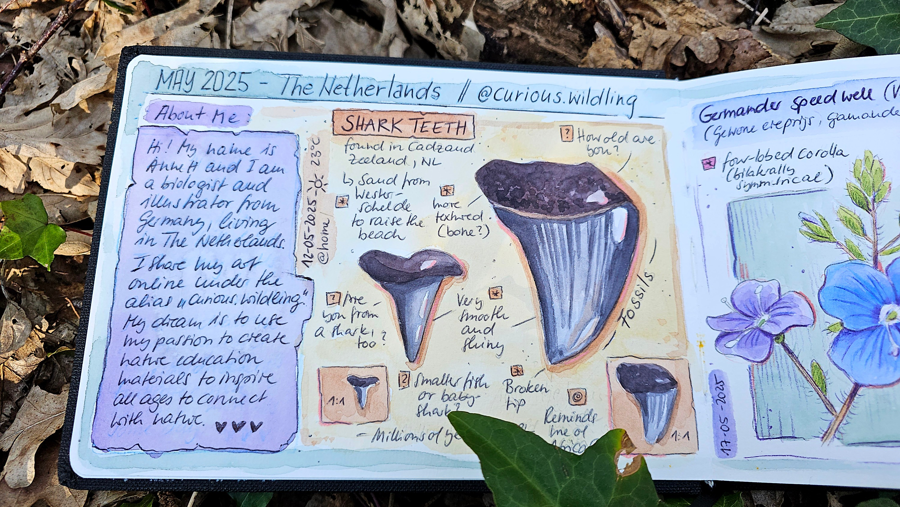 MAY 2025 - The Netherlands // @curious.wildling
About Me:
Hi! My name is
Anna and I am
a biologist and
illustrator from
Germany, living
in The Netherlands.
I share my art
online under the
alias „curious.wildling"
My dream is to use
my passion to create
nature education
materials to inspire
all ages to connect
with nature.
12-05-2025 23°C
@home
SHARK TEETH
found in Cadzand
Zeeland, NL
↳ Sand from
Wester-
schelde
to raise the
beach
more
textured
(bone?)
? How old are
you?
? Are
you from
a shark,
too?
Very
smooth
and
shiny
Fossils
1:1
? Smaller fish
or baby
shark?
Broken
tip
Reminds
me of
1:1
- Millions of
Germander Speedwell
(Gewone ereprijs,
four-lobed corolla
(bilaterally
symmetrical)
17-05-2025